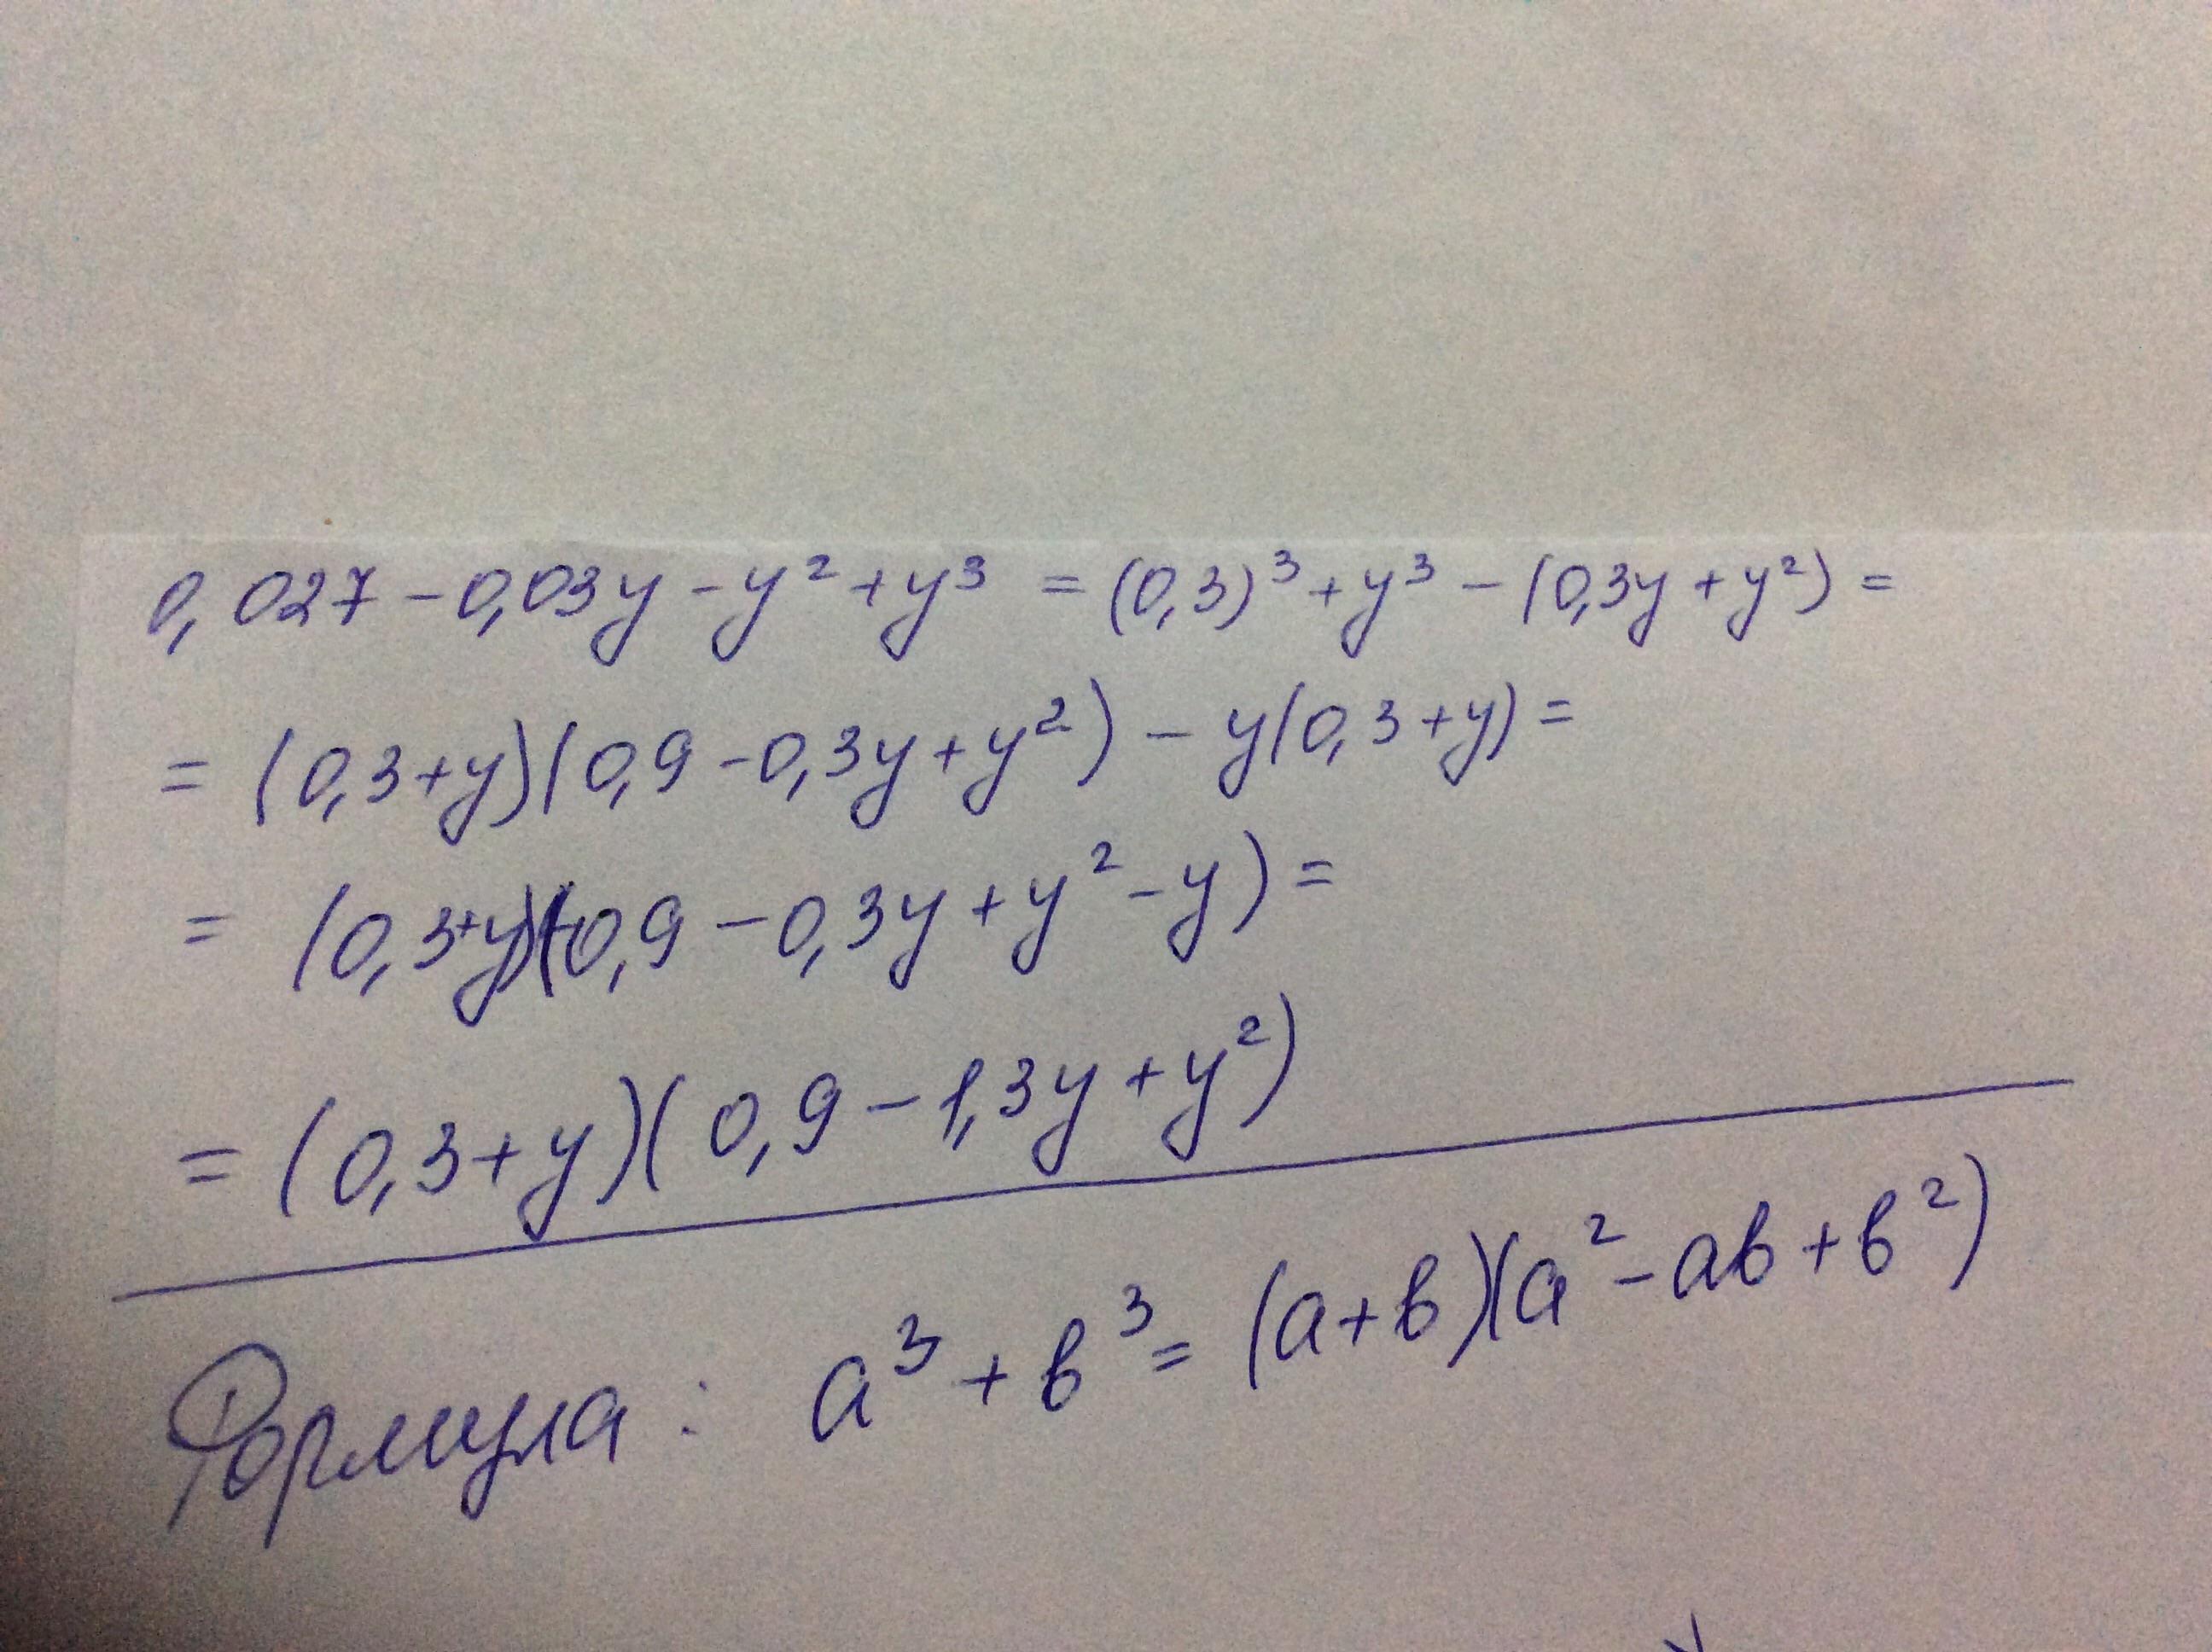 0,027 - 0,03y - y² + y³ = (0,3)³ + y³ - (0,3y + y²) =
= (0,3+y)(0,9 - 0,3y + y²) - y(0,3+y) =
= (0,3+y)(0,9 - 0,3y + y² - y) =
= (0,3+y)(0,9 - 1,3y + y²)
Формула: a³ + в³ = (a+в)(a² - aв + в²)